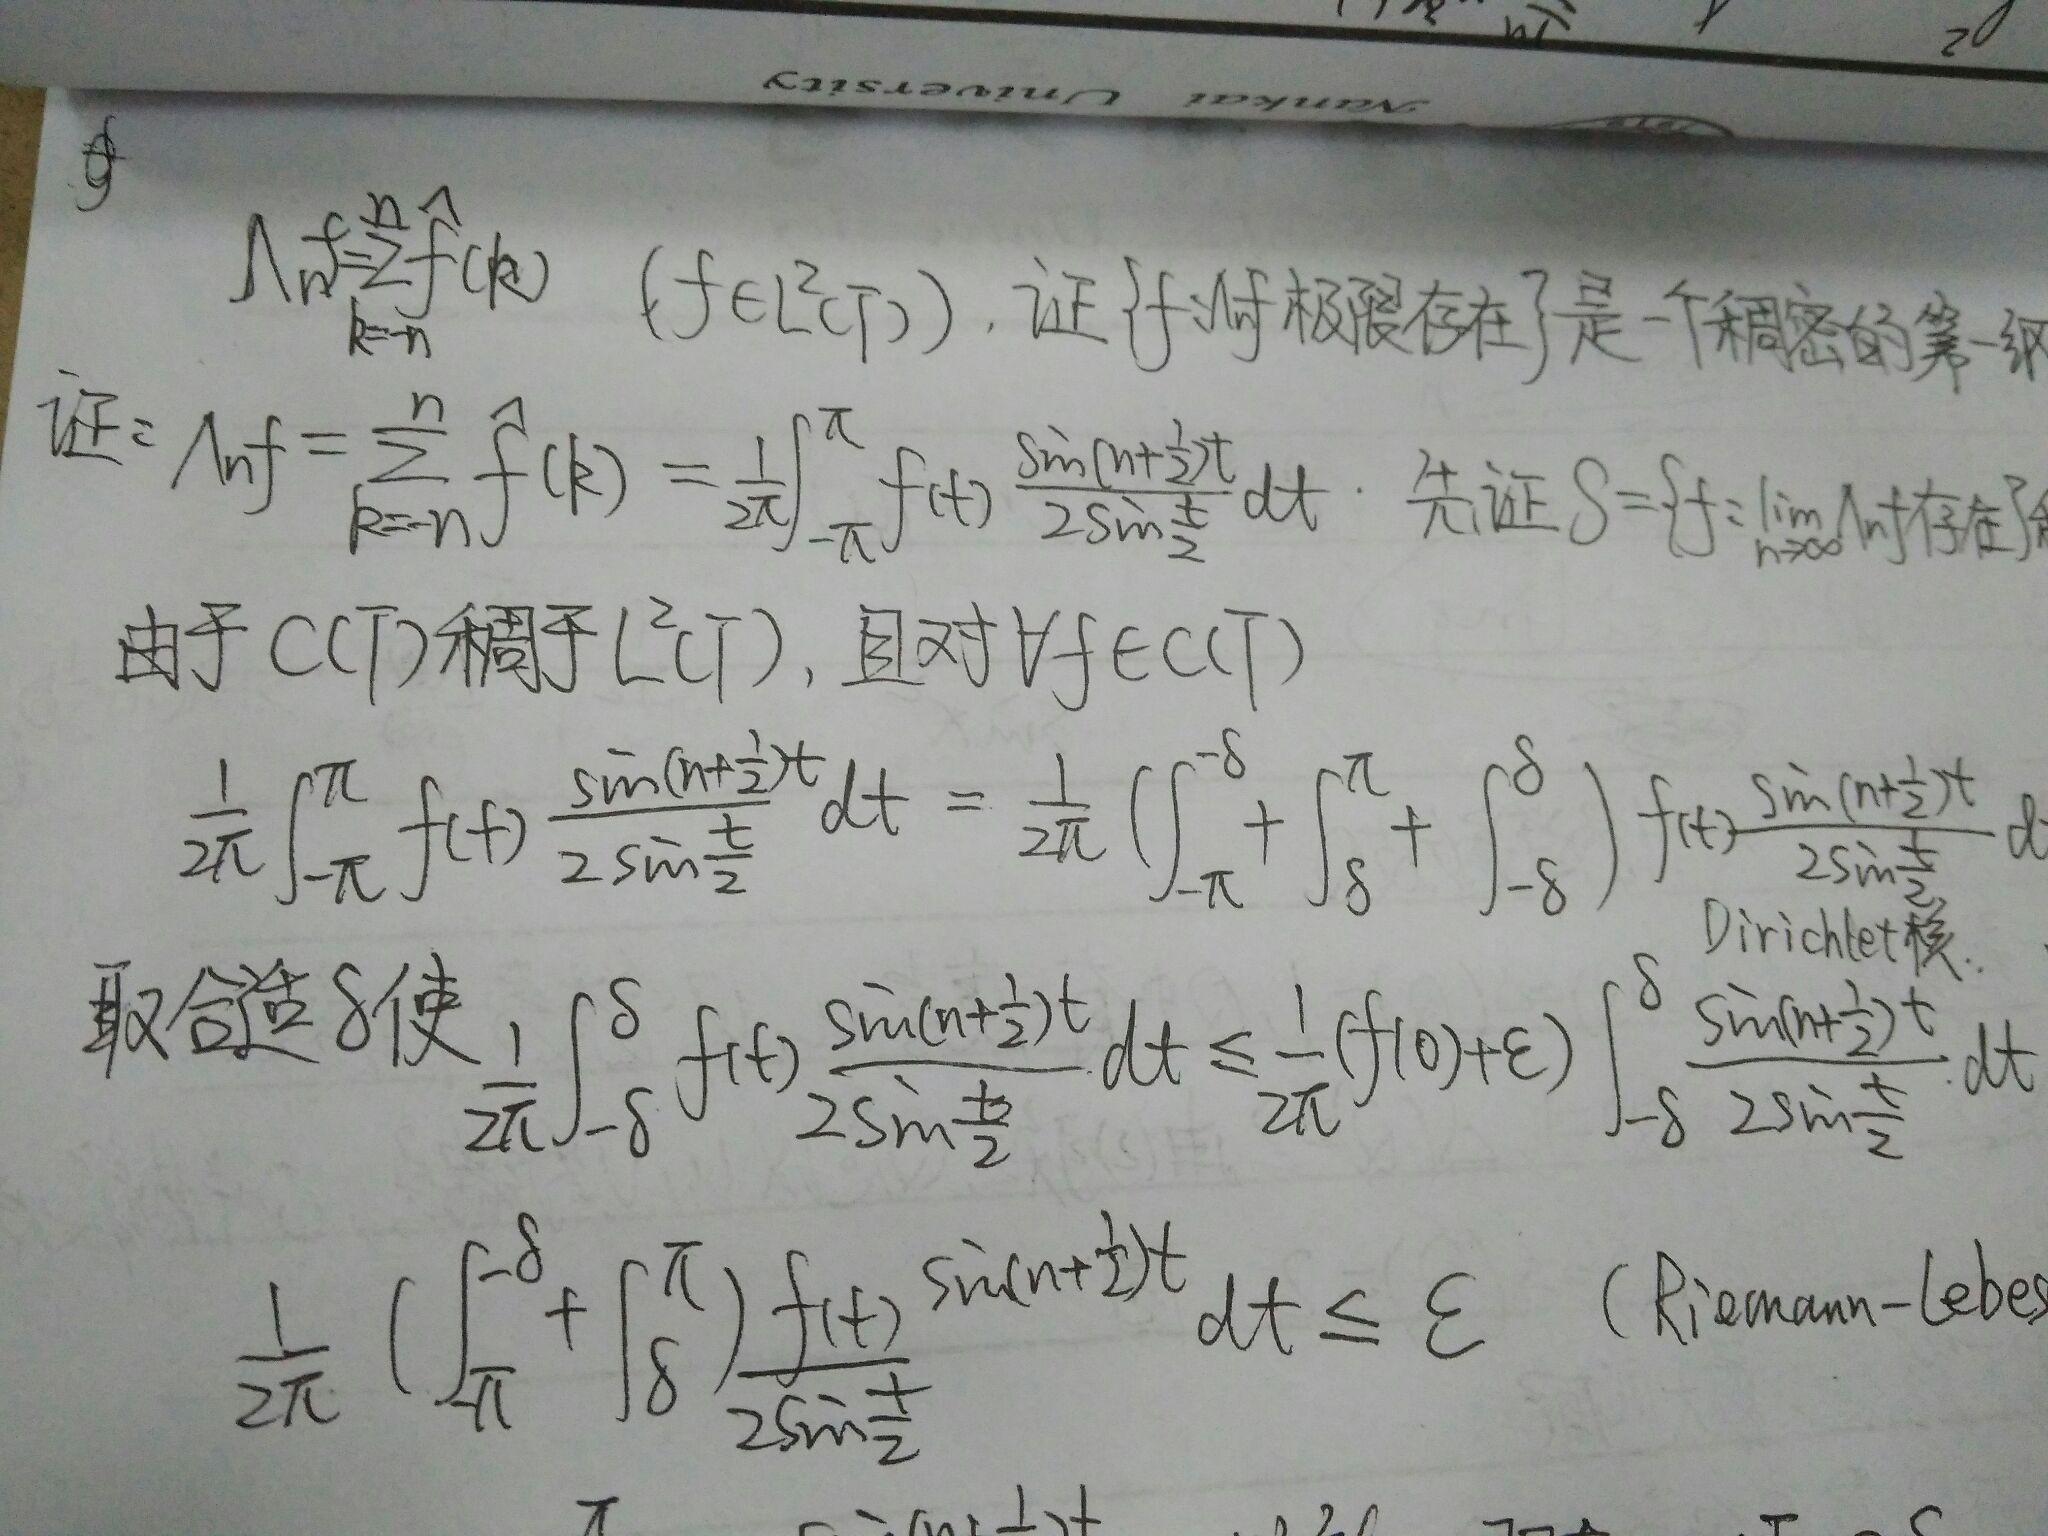 Nankai University
Λnf=∑_{k=-n}^{n} f̂(k) (f∈L²(T)), 证{f:Λnf极限存在}是一个稠密的第一纲
证: Λnf = ∑_{k=-n}^{n} f̂(k) = 1/2π ∫_{-π}^{π} f(t) sin(n+1/2)t / 2sin t/2 dt. 先证 S={f: lim_{n→∞} Λnf存在}
由于C(T)稠于L²(T), 且对∀f∈C(T)
1/2π ∫_{-π}^{π} f(t) sin(n+1/2)t / 2sin t/2 dt = 1/2π (∫_{-π}^{-δ} + ∫_{δ}^{π} + ∫_{-δ}^{δ}) f(t) sin(n+1/2)t / 2sin t/2
Dirichlet核.
取合造δ使 1/2π ∫_{-δ}^{δ} f(t) sin(n+1/2)t / 2sin t/2 dt ≤ 1/2π (f(0)+ε) ∫_{-δ}^{δ} sin(n+1/2)t / 2sin t/2 dt
1/2π (∫_{-π}^{-δ} + ∫_{δ}^{π}) f(t) / 2sin t/2 sin(n+1/2)t dt ≤ ε (Riemann-Lebes